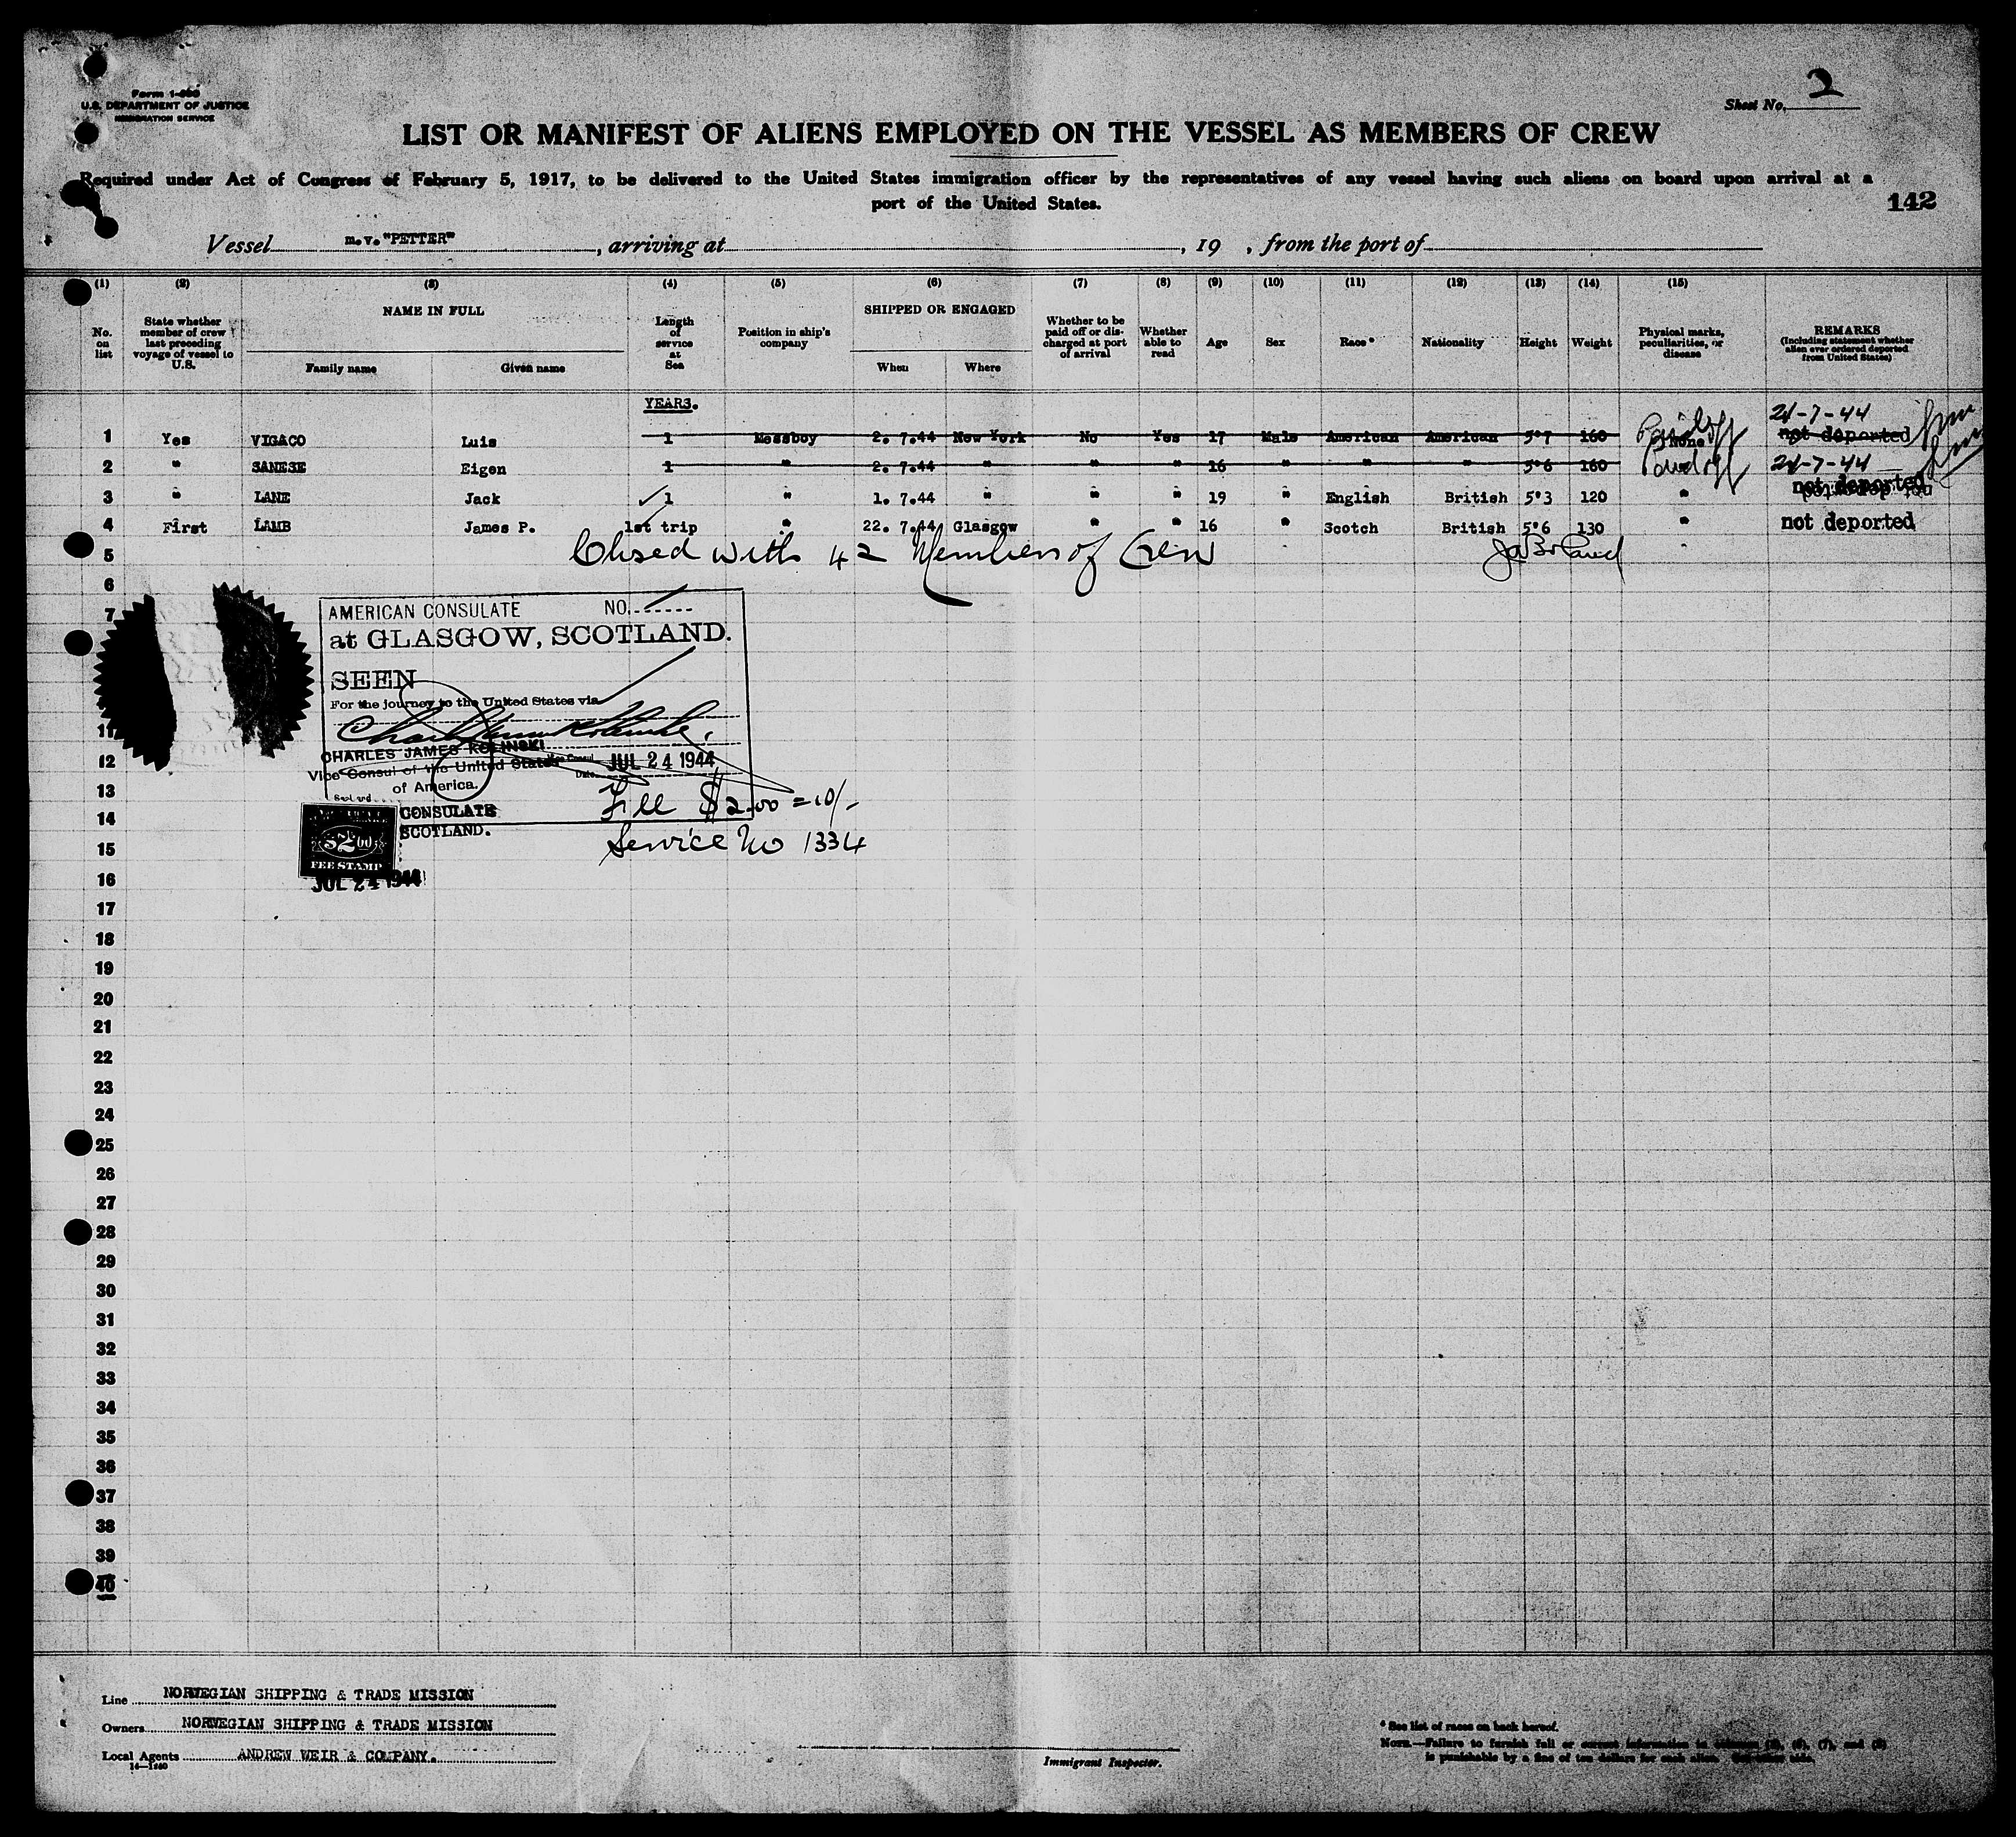 Form I-480
U.S. DEPARTMENT OF JUSTICE
IMMIGRATION SERVICE
Sheet No. 2
LIST OR MANIFEST OF ALIENS EMPLOYED ON THE VESSEL AS MEMBERS OF CREW
Required under Act of Congress of February 5, 1917, to be delivered to the United States immigration officer by the representatives of any vessel having such aliens on board upon arrival at a
port of the United States.
142
Vessel m.v. "PETTER", arriving at, 19 , from the port of
(1) (2) (3) (4) (5) (6) (7) (8) (9) (10) (11) (12) (13) (14) (15)
No. on list
State whether member of crew last preceding voyage of vessel to U.S.
NAME IN FULL
Family name
Given name
Length of service at Sea
Position in ship's company
SHIPPED OR ENGAGED
When
Where
Whether to be paid off or discharged at port of arrival
Whether able to read
Age
Sex
Race*
Nationality
Height
Weight
Physical marks, peculiarities, or disease
REMARKS
(Including statement whether alien ever ordered deported from United States)
YEARS.
21-7-44
1 Yes VIGACO Luis 1 Messboy 2. 7.44 New York No Yes 17 Male American American 5'7 160 Paid off None not deported
2 " SANESE Eigen 1 " 2. 7.44 " " " 16 " " " 5'6 160 Paid off 21-7-44
not deported
3 " LANE Jack 1 " 1. 7.44 " " " 19 " English British 5'3 120 "
4 First LAMB James P. 1st trip " 22. 7.44 Glasgow " " 16 " Scotch British 5'6 130 " not deported
5 Closed with 42 Members of Crew
6
7
AMERICAN CONSULATE NO.
at GLASGOW, SCOTLAND.
SEEN
For the journey to the United States via
CHARLES JAMES KOLINSKI
Vice Consul of the United States
of America.
Vice Consul
Date JUL 24 1944
Fee $2.00 = 10/-
Service No 1334
CONSULATE
SCOTLAND.
$2.00
FEE STAMP
JUL 24 1944
11
12
13
14
15
16
17
18
19
20
21
22
23
24
25
26
27
28
29
30
31
32
33
34
35
36
37
38
39
40
Line NORWEGIAN SHIPPING & TRADE MISSION
Owners NORWEGIAN SHIPPING & TRADE MISSION
Local Agents ANDREW WEIR & COMPANY.
Immigrant Inspector.
* See list of races on back hereof.
NOTE.—Failure to furnish full or correct information in columns (2), (6), (7), and (8)
is punishable by a fine of ten dollars for each alien. See other side.